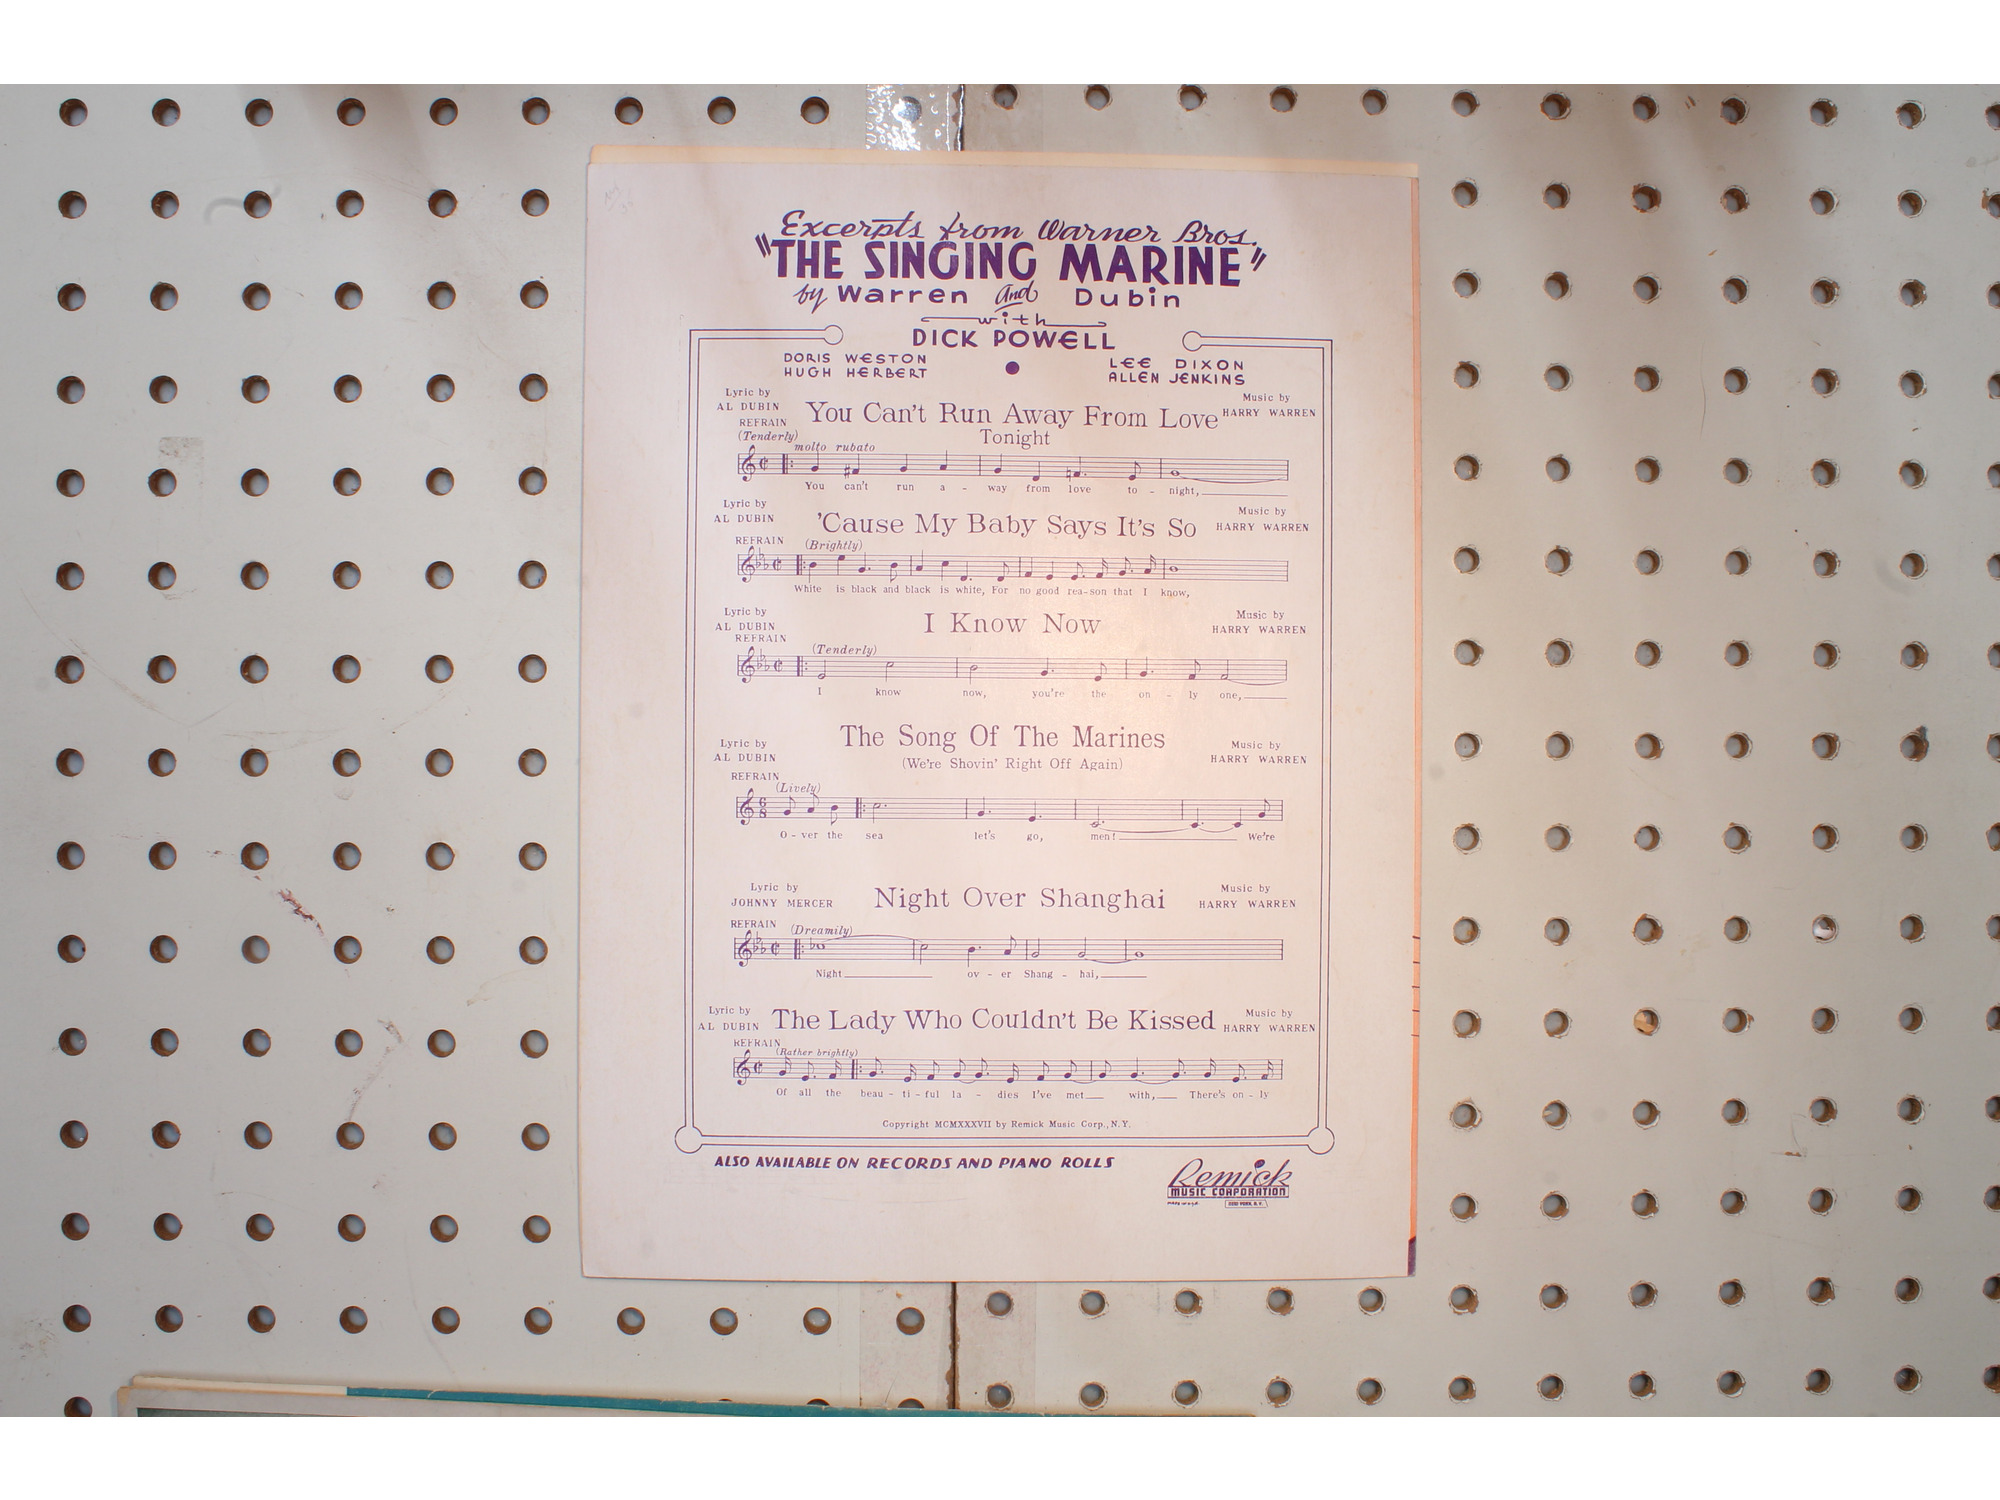 Excerpts from Warner Bros.
"THE SINGING MARINE"
by Warren and Dubin
with
DICK POWELL
DORIS WESTON
HUGH HERBERT
LEE DIXON
ALLEN JENKINS
Lyric by
AL DUBIN
You Can't Run Away From Love
Tonight
Music by
HARRY WARREN
REFRAIN
(Tenderly)
molto rubato
You can't run a - way from love to - night,
Lyric by
AL DUBIN
'Cause My Baby Says It's So
Music by
HARRY WARREN
REFRAIN
(Brightly)
White is black and black is white, For no good rea-son that I know,
Lyric by
AL DUBIN
I Know Now
Music by
HARRY WARREN
REFRAIN
(Tenderly)
I know now, you're the on - ly one,
Lyric by
AL DUBIN
The Song Of The Marines
(We're Shovin' Right Off Again)
Music by
HARRY WARREN
REFRAIN
(Lively)
O - ver the sea let's go, men! We're
Lyric by
JOHNNY MERCER
Night Over Shanghai
Music by
HARRY WARREN
REFRAIN
(Dreamily)
Night ov - er Shang - hai,
Lyric by
AL DUBIN
The Lady Who Couldn't Be Kissed
Music by
HARRY WARREN
REFRAIN
(Rather brightly)
Of all the beau - ti - ful la - dies I've met with, There's on - ly
Copyright MCMXXXVII by Remick Music Corp., N.Y.
ALSO AVAILABLE ON RECORDS AND PIANO ROLLS
Remick
MUSIC CORPORATION
NEW YORK, N.Y.